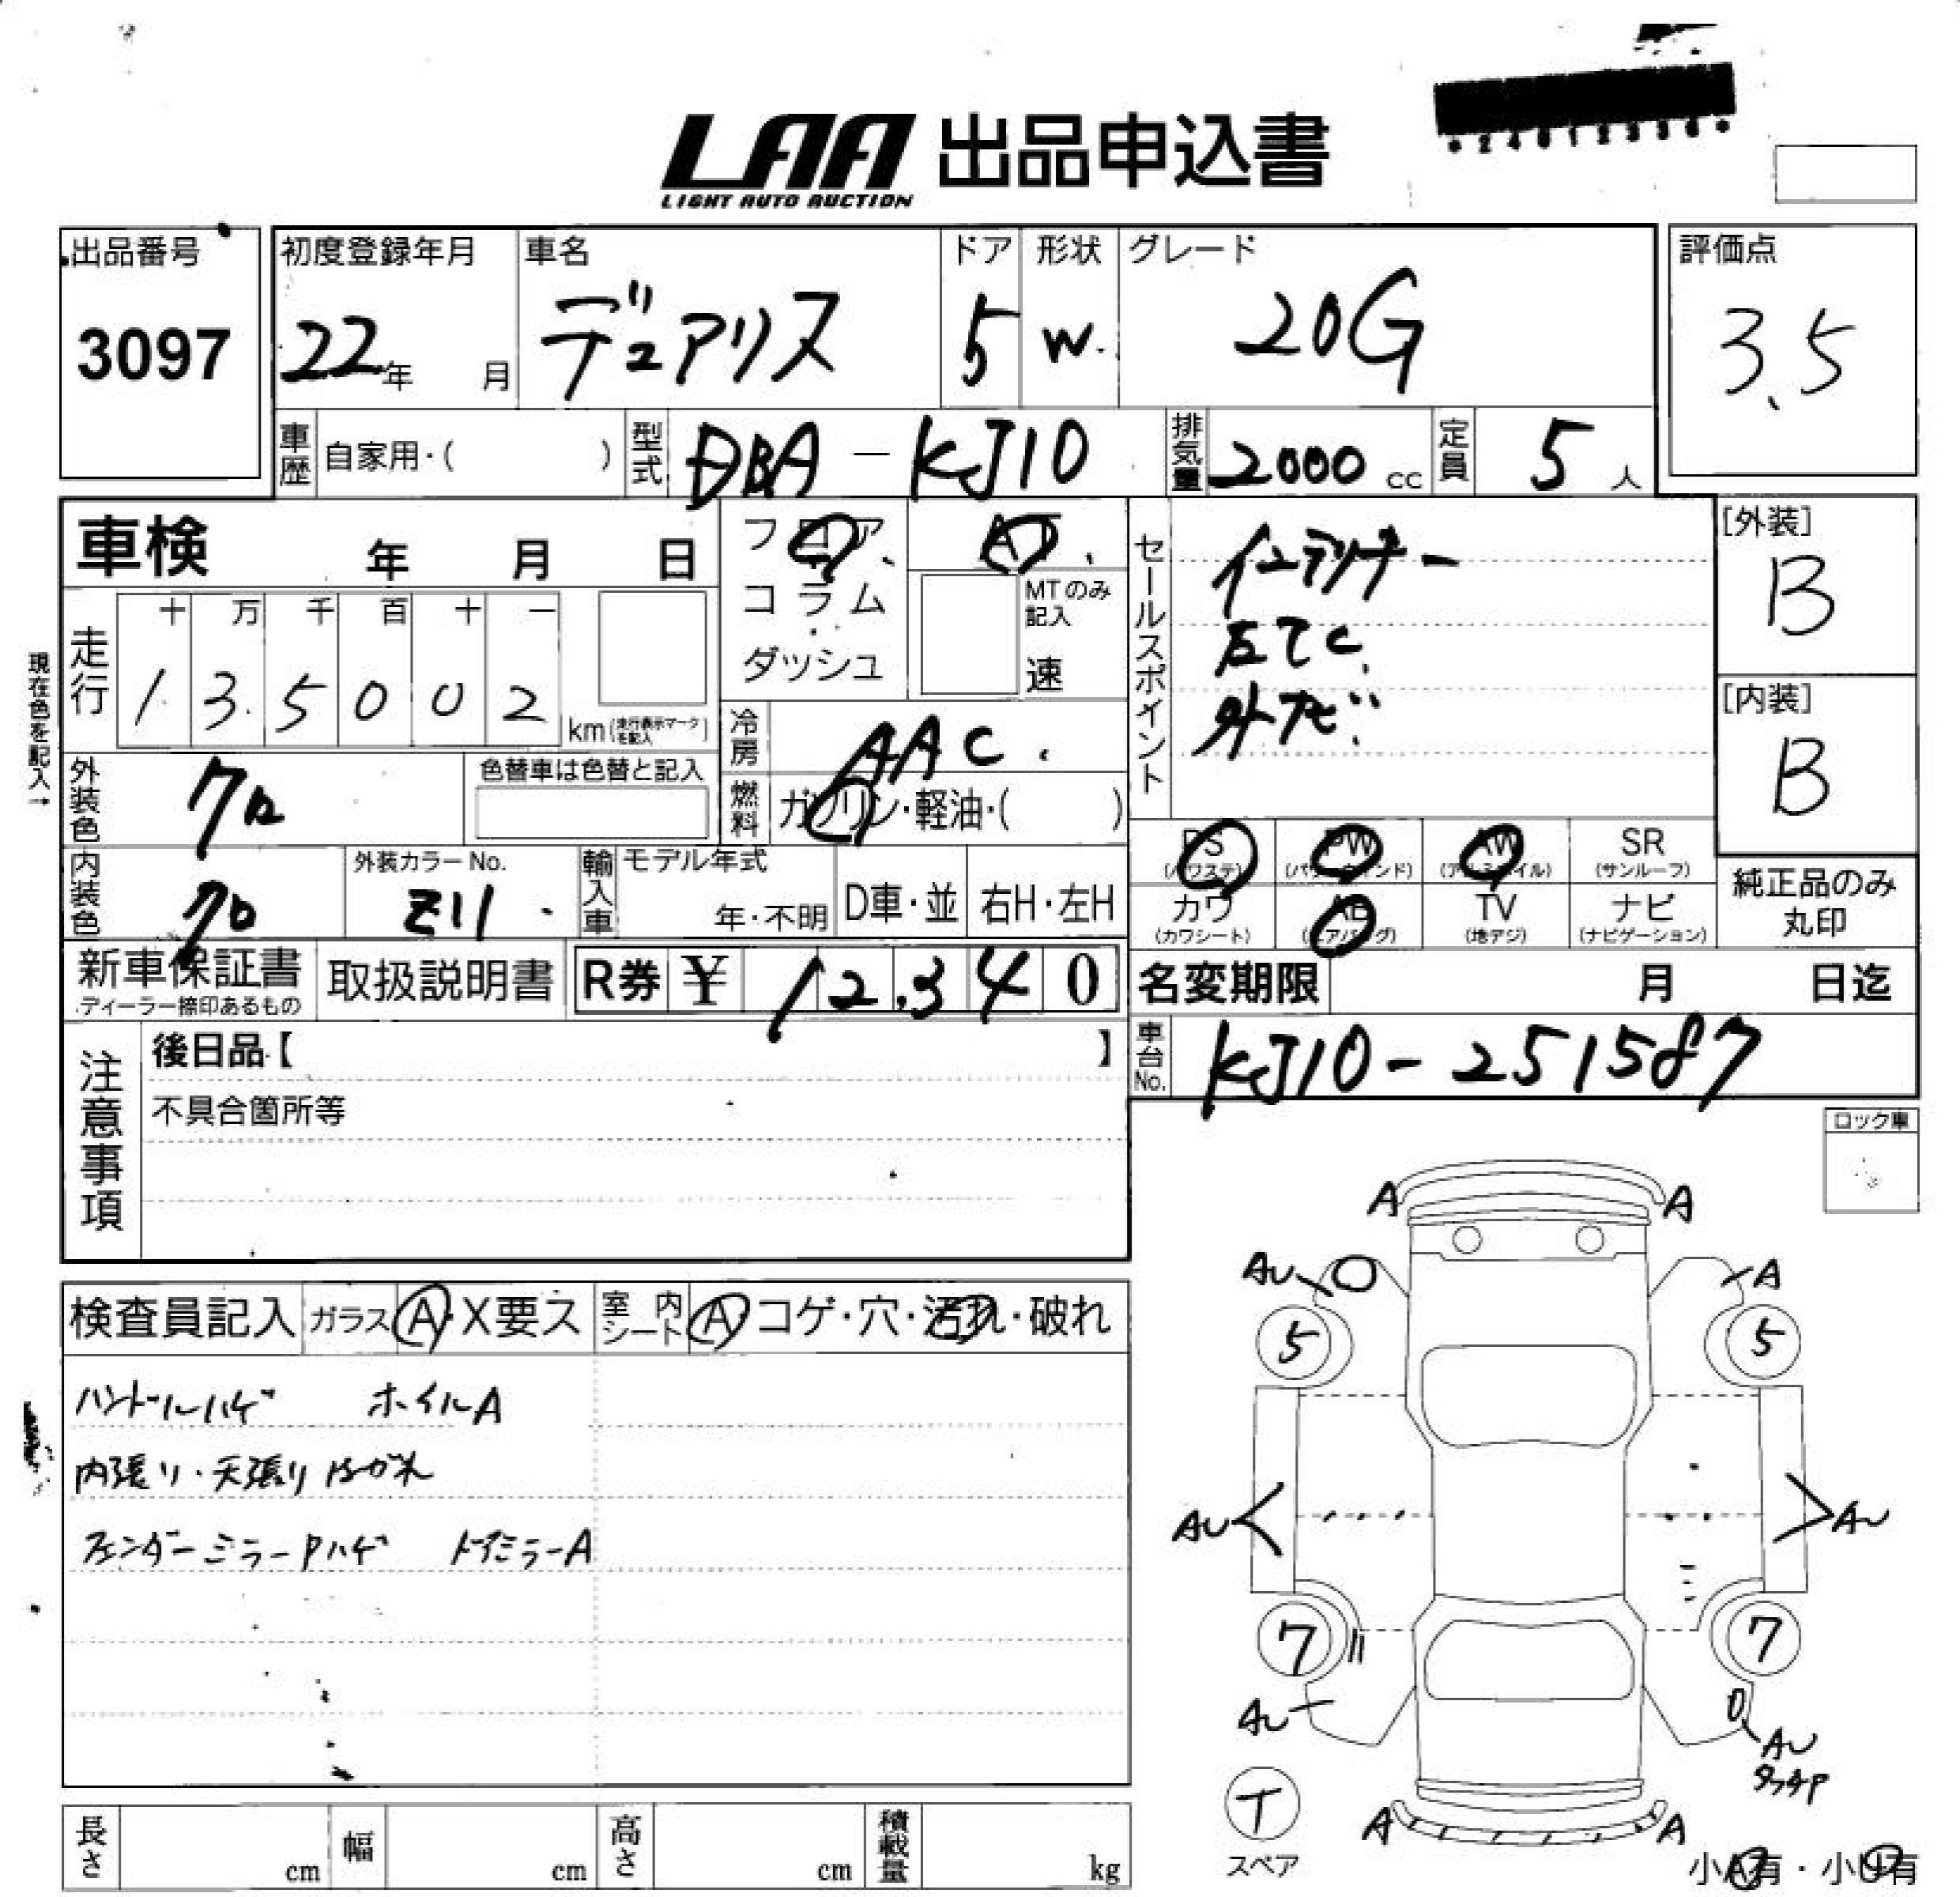 LAA 出品申込書
LIGHT AUTO AUCTION
出品番号
3097
初度登録年月
22年 月
車名
デュアリス
ドア
5
形状
W.
グレード
20G
評価点
3.5
車歴 自家用・( )
型式 DBA-KJ10
排気量 2000 cc
定員 5 人
車検 年 月 日
フロア
コラム
ダッシュ
AT
MTのみ記入
速
セールスポイント
インテリキー
ETC
外ナビ
[外装]
B
[内装]
B
現在色を記入→
走行
十 万 千 百 十 一
1 3 5 0 0 2
km(走行表示マークを記入)
冷房 AAC.
燃料 ガソリン・軽油・( )
外装色 クロ
色替車は色替と記入
内装色 クロ
外装カラーNo.
Z11
輸入車
モデル年式
年・不明
D車・並
右H・左H
PS (パワステ)
PW (パワーウィンド)
AW (アルミホイル)
SR (サンルーフ)
カワ (カワシート)
AB (エアバッグ)
TV (地デジ)
ナビ (ナビゲーション)
純正品のみ
丸印
新車保証書
ディーラー捺印あるもの
取扱説明書
R券 ¥ 12,340
名変期限 月 日迄
車台No. KJ10-251587
注意事項
後日品【 】
不具合箇所等
ロック車
検査員記入
ガラス A・X要ス
室内シート A コゲ・穴・汚れ・破れ
ハンドルハゲ ホイルA
内張り・天張りはがれ
フェンダーミラーPハゲ ドアミラーA
A A
AU A
5 5
AU AU
7 7
AU AU
タッチP
T
スペア
A A
小A有・小U有
長さ cm
幅 cm
高さ cm
積載量 kg